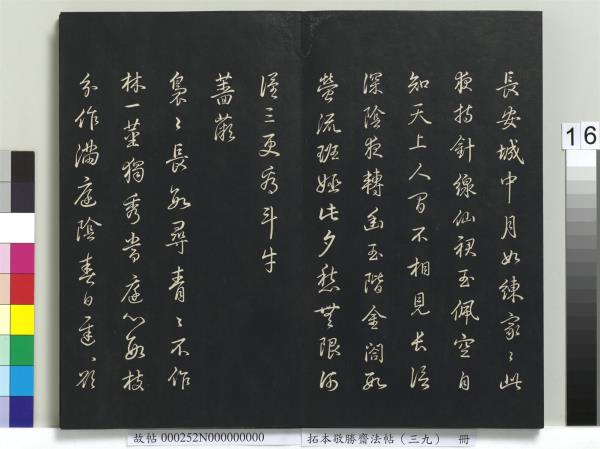 長安城中月如練家〻此
夜持針線仙裙玉佩空自
知天上人間不相見長信
深陰夜轉幽玉階金閣數
螢流班姬此夕愁無限河
漢三更看斗牛
薔薇
裊〻長數尋青〻不作
林一莖獨秀當庭心數枝
分作滿庭陰春日遲〻欲
16
故帖 000252N000000000 拓本敬勝齋法帖(三九) 冊